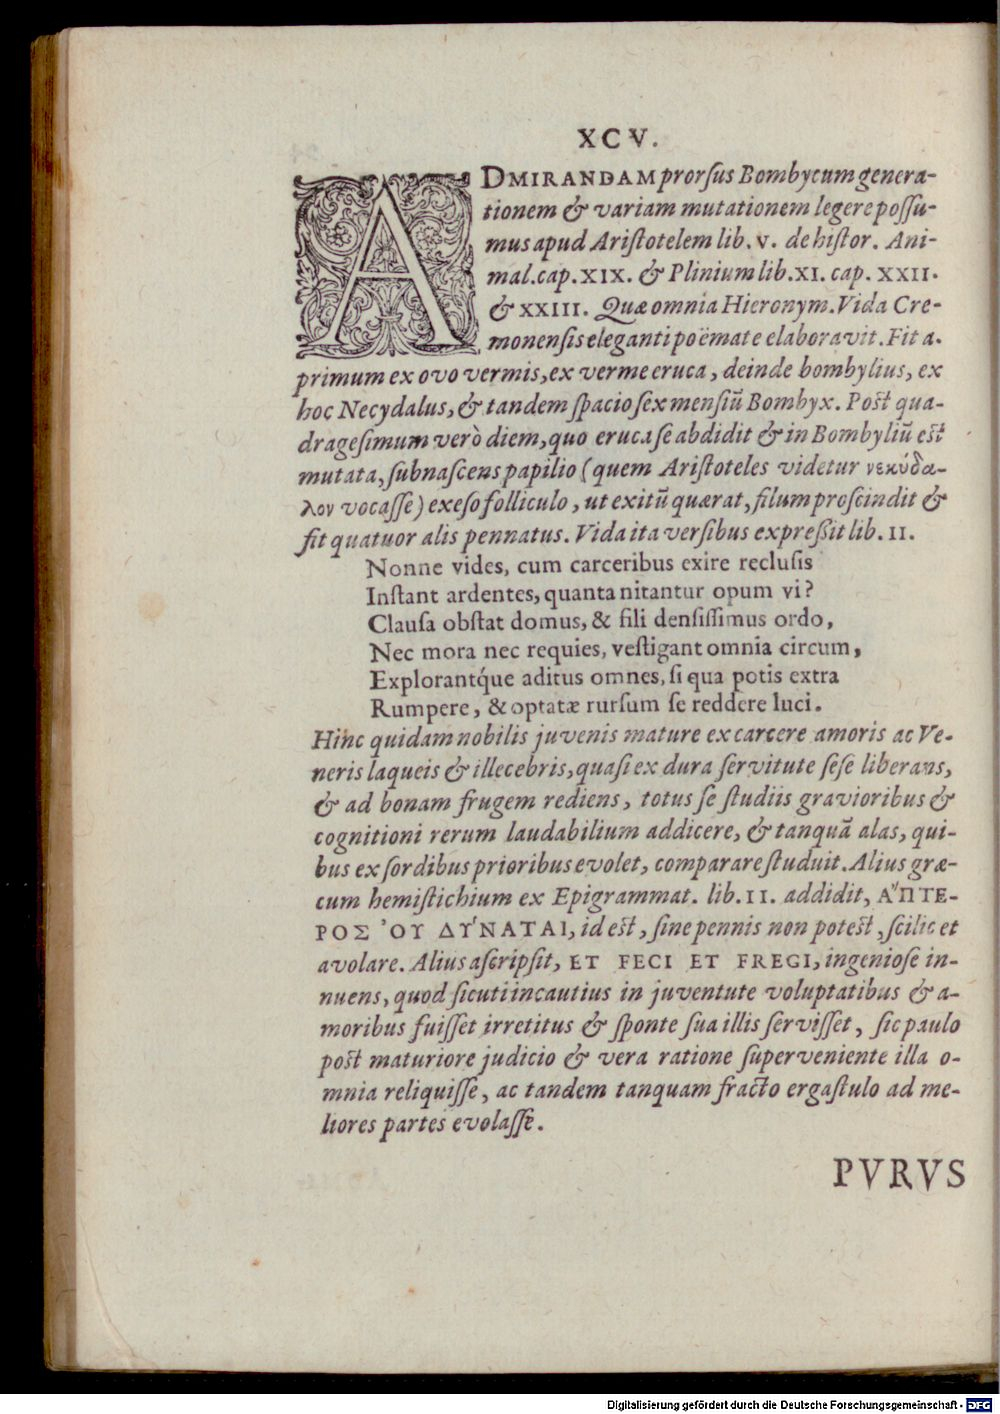 XCV.
ADMIRANDAM prorſus Bombycum genera-
tionem & variam mutationem legere poſſu-
mus apud Ariſtotelem lib. v. de hiſtor. Ani-
mal. cap. XIX. & Plinium lib. XI. cap. XXII.
& XXIII. Quæ omnia Hieronym. Vida Cre-
monenſis eleganti poëmate elaboravit. Fit a.
primum ex ovo vermis, ex verme eruca, deinde bombylius, ex
hoc Necydalus, & tandem ſpacio ſex menſiũ Bombyx. Poſt qua-
drageſimum verò diem, quo eruca ſe abdidit & in Bombyliũ eſt
mutata, ſubnaſcens papilio (quem Ariſtoteles videtur νεκύδα-
λον vocaſſe) exeſo folliculo, ut exitũ quærat, filum proſcindit &
fit quatuor alis pennatus. Vida ita verſibus expreßit lib. II.
Nonne vides, cum carceribus exire recluſis
Inſtant ardentes, quanta nitantur opum vi?
Clauſa obſtat domus, & fili denſiſſimus ordo,
Nec mora nec requies, veſtigant omnia circum,
Explorantq́ue aditus omnes, ſi qua potis extra
Rumpere, & optatæ rurſum ſe reddere luci.
Hinc quidam nobilis juvenis mature ex carcere amoris ac Ve-
neris laqueis & illecebris, quaſi ex dura ſervitute ſeſe liberans,
& ad bonam frugem rediens, totus ſe ſtudiis gravioribus &
cognitioni rerum laudabilium addicere, & tanquã alas, qui-
bus ex ſordibus prioribus evolet, comparare ſtuduit. Alius græ-
cum hemiſtichium ex Epigrammat. lib. II. addidit, Ἄ ΠΤΕ-
ΡΟΣ ὈΥ ΔΎΝΑΤΑΙ, id eſt, ſine pennis non poteſt, ſcilicet
avolare. Alius aſcripſit, ET FECI ET FREGI, ingenioſe in-
nuens, quod ſicuti incautius in juventute voluptatibus & a-
moribus fuiſſet irretitus & ſponte ſua illis ſerviſſet, ſic paulo
poſt maturiore judicio & vera ratione ſuperveniente illa o-
mnia reliquiſſe, ac tandem tanquam fracto ergaſtulo ad me-
liores partes evolaſſe.
PVRVS
Digitalisierung gefördert durch die Deutsche Forschungsgemeinschaft - DFG